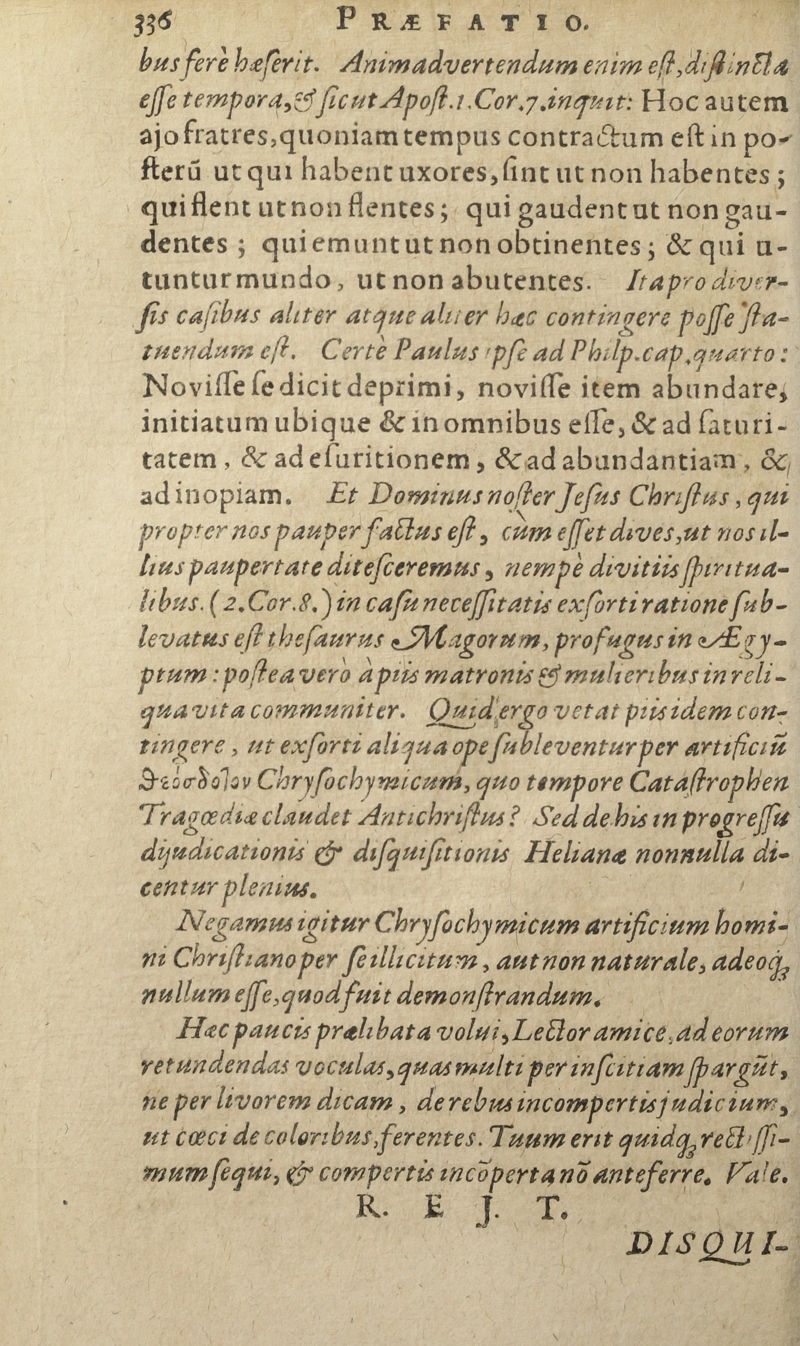 336 PRÆFATIO.
bus ferè hæserit. Animadvertendum enim est, distincta
esse tempora, & sicut Apost. 1. Cor. 7. inquit: Hoc autem
ajo fratres, quoniam tempus contractum est in po-
sterũ ut qui habent uxores, sint ut non habentes;
qui flent ut non flentes; qui gaudent ut non gau-
dentes; qui emunt ut non obtinentes; & qui u-
tuntur mundo, ut non abutentes. Ita pro diver-
sis casibus aliter atque aliter hæc contingere posse sta-
tuendum est. Certè Paulus ipse ad Philp. cap. quarto:
Novisse se dicit deprimi, novisse item abundare,
initiatum ubique & in omnibus esse, & ad saturi-
tatem, & ad esuritionem, & ad abundantiam, &
ad inopiam. Et Dominus noster Jesus Christus, qui
propter nos pauper factus est, cùm esset dives, ut nos il-
lius paupertate ditesceremus, nempè divitiis spiritua-
libus. (2. Cor. 8.) in casu necessitatis exsorti ratione sub-
levatus est thesaurus Magorum, profugus in Ægy-
ptum: postea verò à piis matronis & mulieribus in reli-
qua vita communiter. Quid ergo vetat piis idem con-
tingere, ut exsorti aliqua ope subleventur per artificiũ
θεόσδοτον Chrysochymicum, quo tempore Catastrophen
Tragœdiæ claudet Antichristus? Sed de his in progressu
dijudicationis & disquisitionis Helianæ nonnulla di-
centur plenius.
Negamus igitur Chrysochymicum artificium homi-
ni Christiano per se illicitum, aut non naturale, adeoq;
nullum esse, quod fuit demonstrandum.
Hæc paucis prælibata volui, Lector amice, ad eorum
retundendas voculas, quas multi per inscitiam spargũt,
ne per livorem dicam, de rebus incompertis judicium,
ut cœci de coloribus, ferentes. Tuum erit quidq; rectissi-
mum sequi, & compertis incõperta nõ anteferre. Vale.
R. E J. T.
DISQUI-